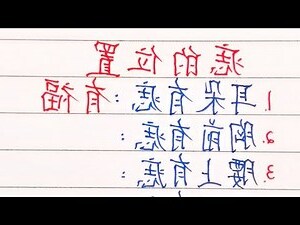 痣的位置
1.耳朵有痣：有福
2.胸前有痣：
3.腰上有痣：